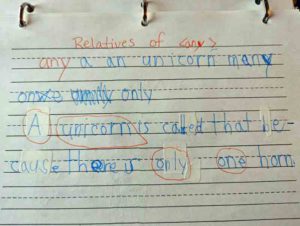 Relatives of <any>
any a an unicorn many
once only
A unicorn is called that be-
cause there is only one horn.